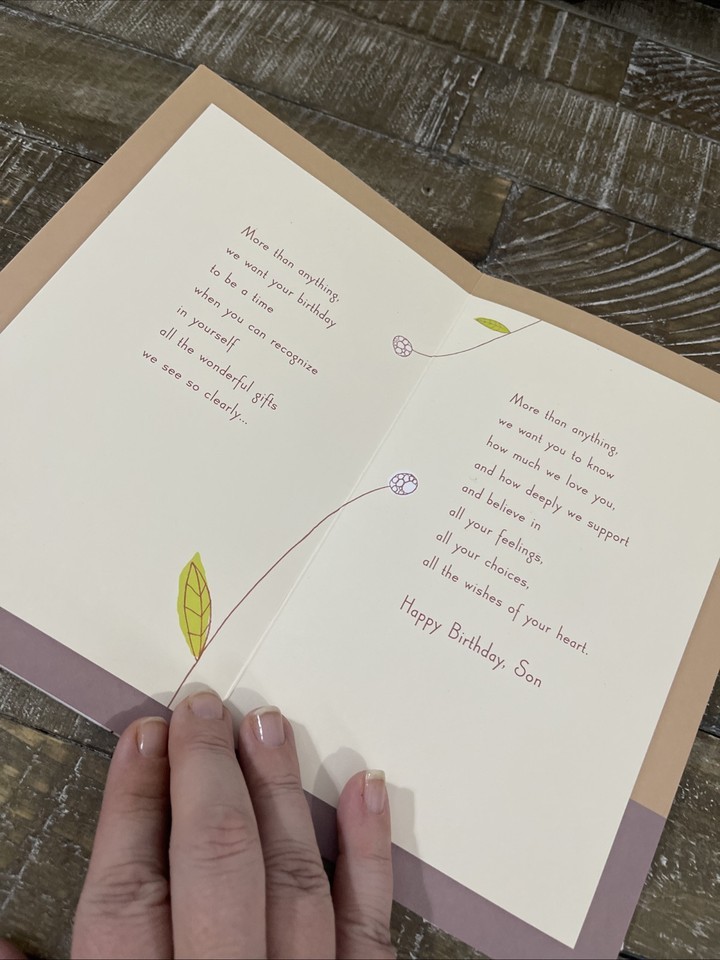 More than anything,
we want your birthday
to be a time
when you can recognize
in yourself
all the wonderful gifts
we see so clearly...
More than anything,
we want you to know
how much we love you,
and how deeply we support
and believe in
all your feelings,
all your choices,
all the wishes of your heart.
Happy Birthday, Son